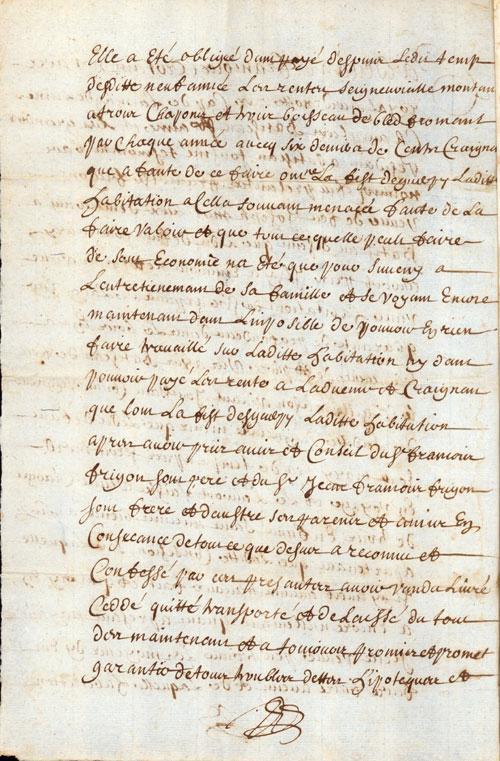 Elle a Eté obligéé dempayé despuis Ledit temp
desditte neuf année Les rentes seigneurialle montan
a trois Chapons et trois boisseau de bled fromant
par chaque année avecq six deniers de Cents
que a faute de ce faire La fist deguerpy Laditte
habitation a Cella souvant menacée faute de La
faire valoir et que tout ce quelle peult faire
de son Economie na Eté que pour suveny a
Lentretienemant de sa famille et se voyant Encore
maintenant dans Linposible de pouvoir En rien
faire travaillé sur Laditte habitation ny dans
pouvoir payé Les rente a Ladvenir et Craignan
que lon La fist deguerpy Laditte habitation
apres avoir pris avis et Conseil du Sr francois
frigon son pere et du Sr Jean francois frigon
son frere et daustre ses parents et amis En
Consecance de tout ce que desus a reconnu et
Confessé par ces presantes avoir vandu Livré
Cedde quitté transporté et delaissé du tout
des maintenant et a toujours promis et promet
garantir de tous troubles dettes hipoteques et